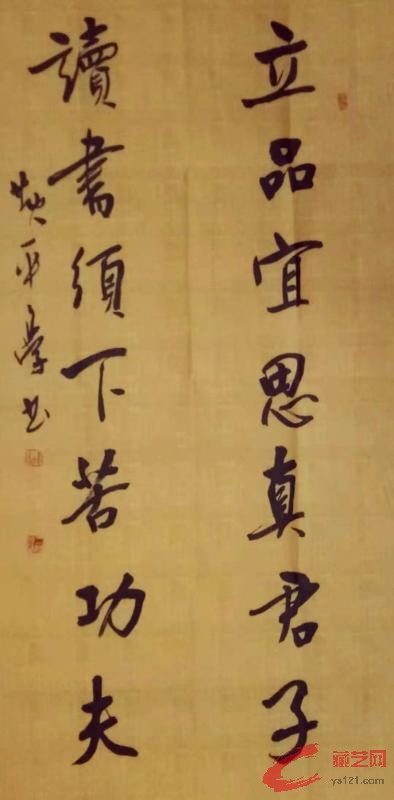 立品宜思真君子
讀書須下苦功夫
平學书
藏艺网
ys121.com